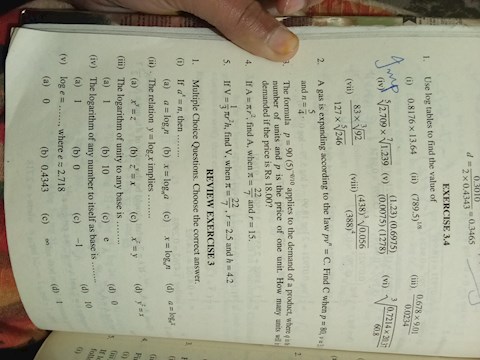 0.3010
d = 2 × 0.4343 = 0.3465
EXERCISE 3.4
1. Use log tables to find the value of
(i) 0.8176 × 13.64 (ii) (789.5)^1/8 (iii) 0.678 × 9.01 / 0.0234
(iv) ⁵√2.709 × ⁷√1.239 (v) (1.23) (0.6975) / (0.0075) (1278) (vi) ³√0.7214 × 20.37 / 60.8
(vii) 83 × ³√92 / 127 × ⁵√246 (viii) (438)³ √0.056 / (388)⁴
2. A gas is expanding according to the law pvⁿ = C. Find C when p = 80,
and n = 5/4.
3. The formula p = 90 (5)^–q/10 applies to the demand of a product, when q is
number of units and p is the price of one unit. How many units will
demanded if the price is Rs 18.00?
4. If A = πr², find A, when π = 22/7 and r = 15.
5. If V = 1/3 πr²h, find V, when π = 22/7, r = 2.5 and h = 4.2
REVIEW EXERCISE 3
1. Multiple Choice Questions. Choose the correct answer.
(i) If aˣ = n, then ......
(a) a = logₓn (b) x = logₙa (c) x = logₐn (d) a = logₙx
(ii) The relation y = log_z x implies ......
(a) xʸ = z (b) zʸ = x (c) xᶻ = y (d) yᶻ = x
(iii) The logarithm of unity to any base is ........
(a) 1 (b) 10 (c) e (d) 0
(iv) The logarithm of any number to itself as base is ........
(a) 1 (b) 0 (c) –1 (d) 10
(v) log e = ......, where e ≈ 2.718
(a) 0 (b) 0.4343 (c) ∞ (d) 1